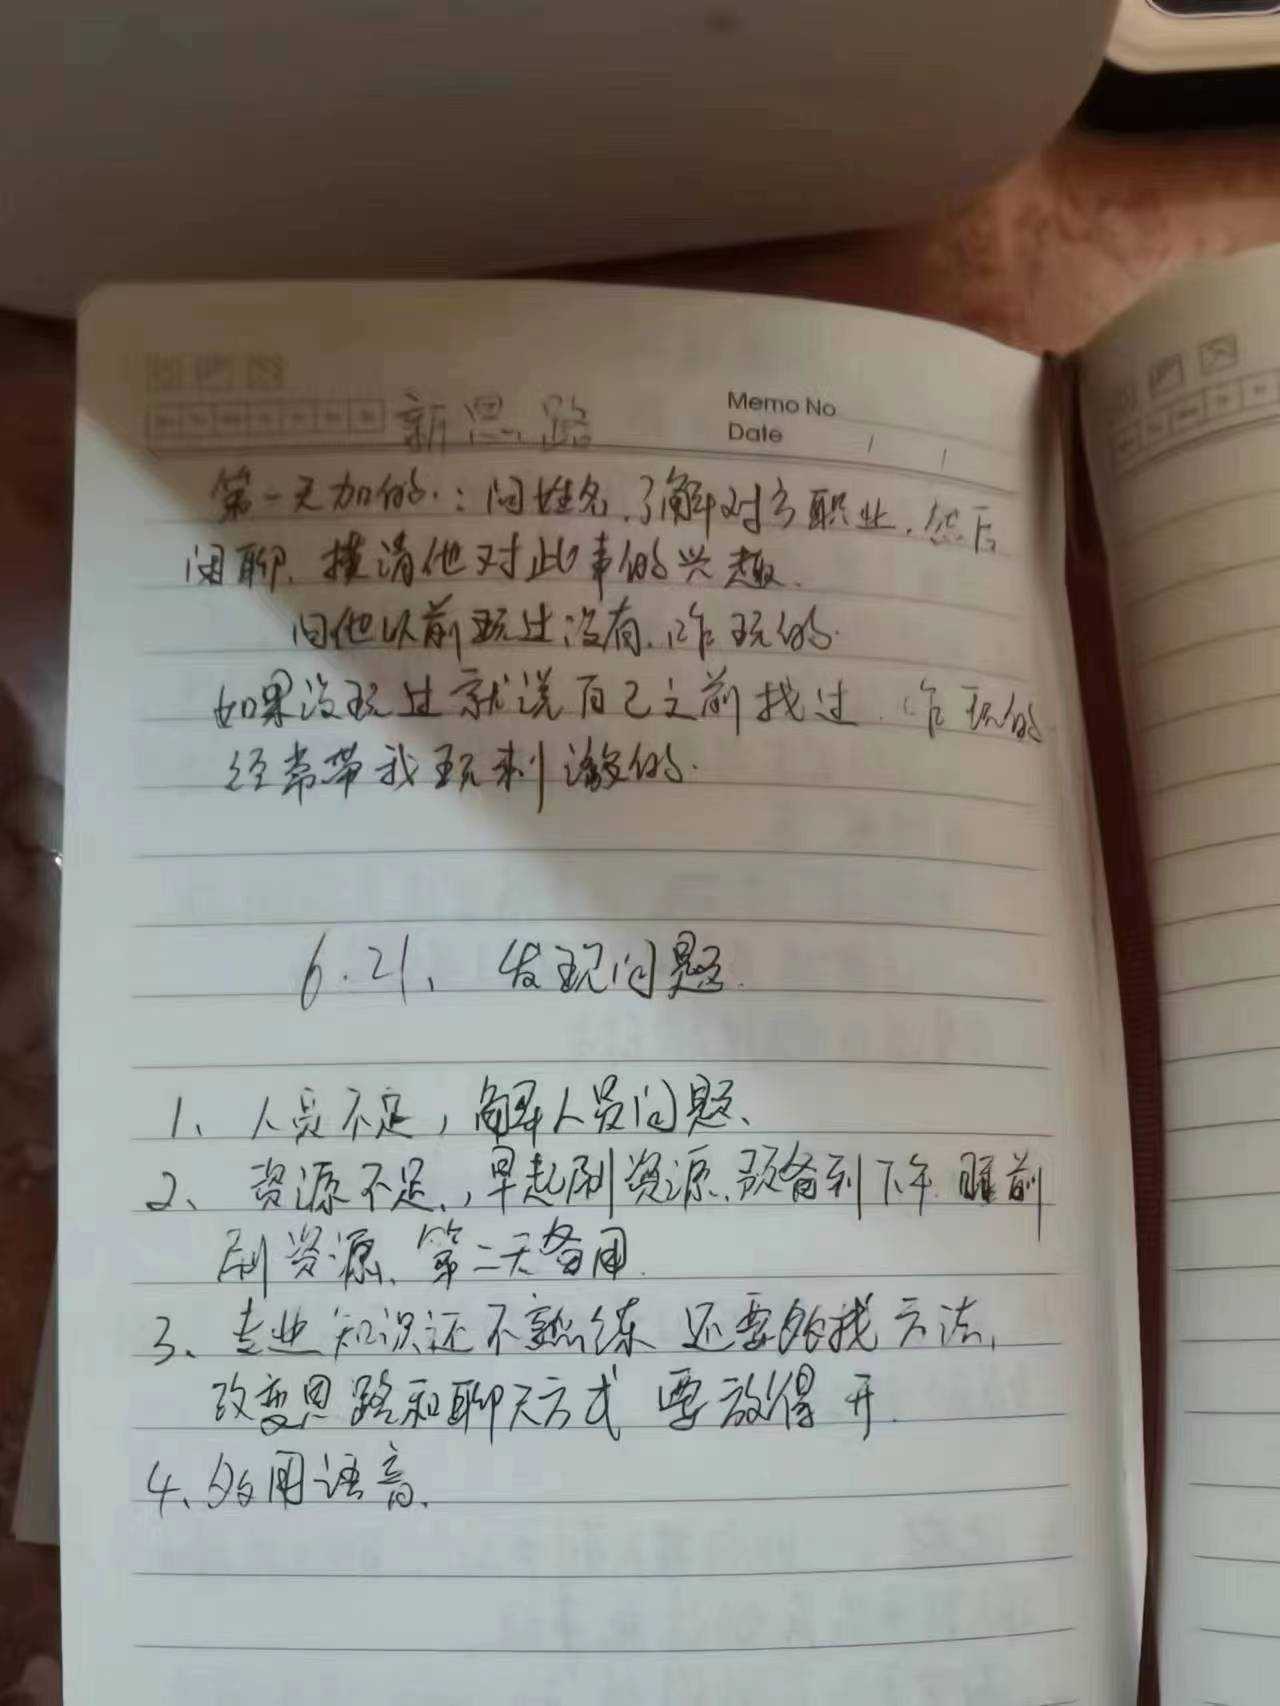 新思路
Memo No
Date / /
第一天加的.：问姓名.了解对方职业.然后
闲聊.摸清他对此事的兴趣.
问他以前玩过没有.咋玩的.
如果没玩过就说自己之前找过.咋玩的
经常带我玩刺激的.
6.21、发现问题.
1、人员不足，解人员问题、
2、资源不足.，早起刷资源.预备到下午.睡前
刷资源、第二天备用.
3、专业知识还不熟练 还要多找方法,
改变思路和聊天方式 要放得开.
4、多用语音.